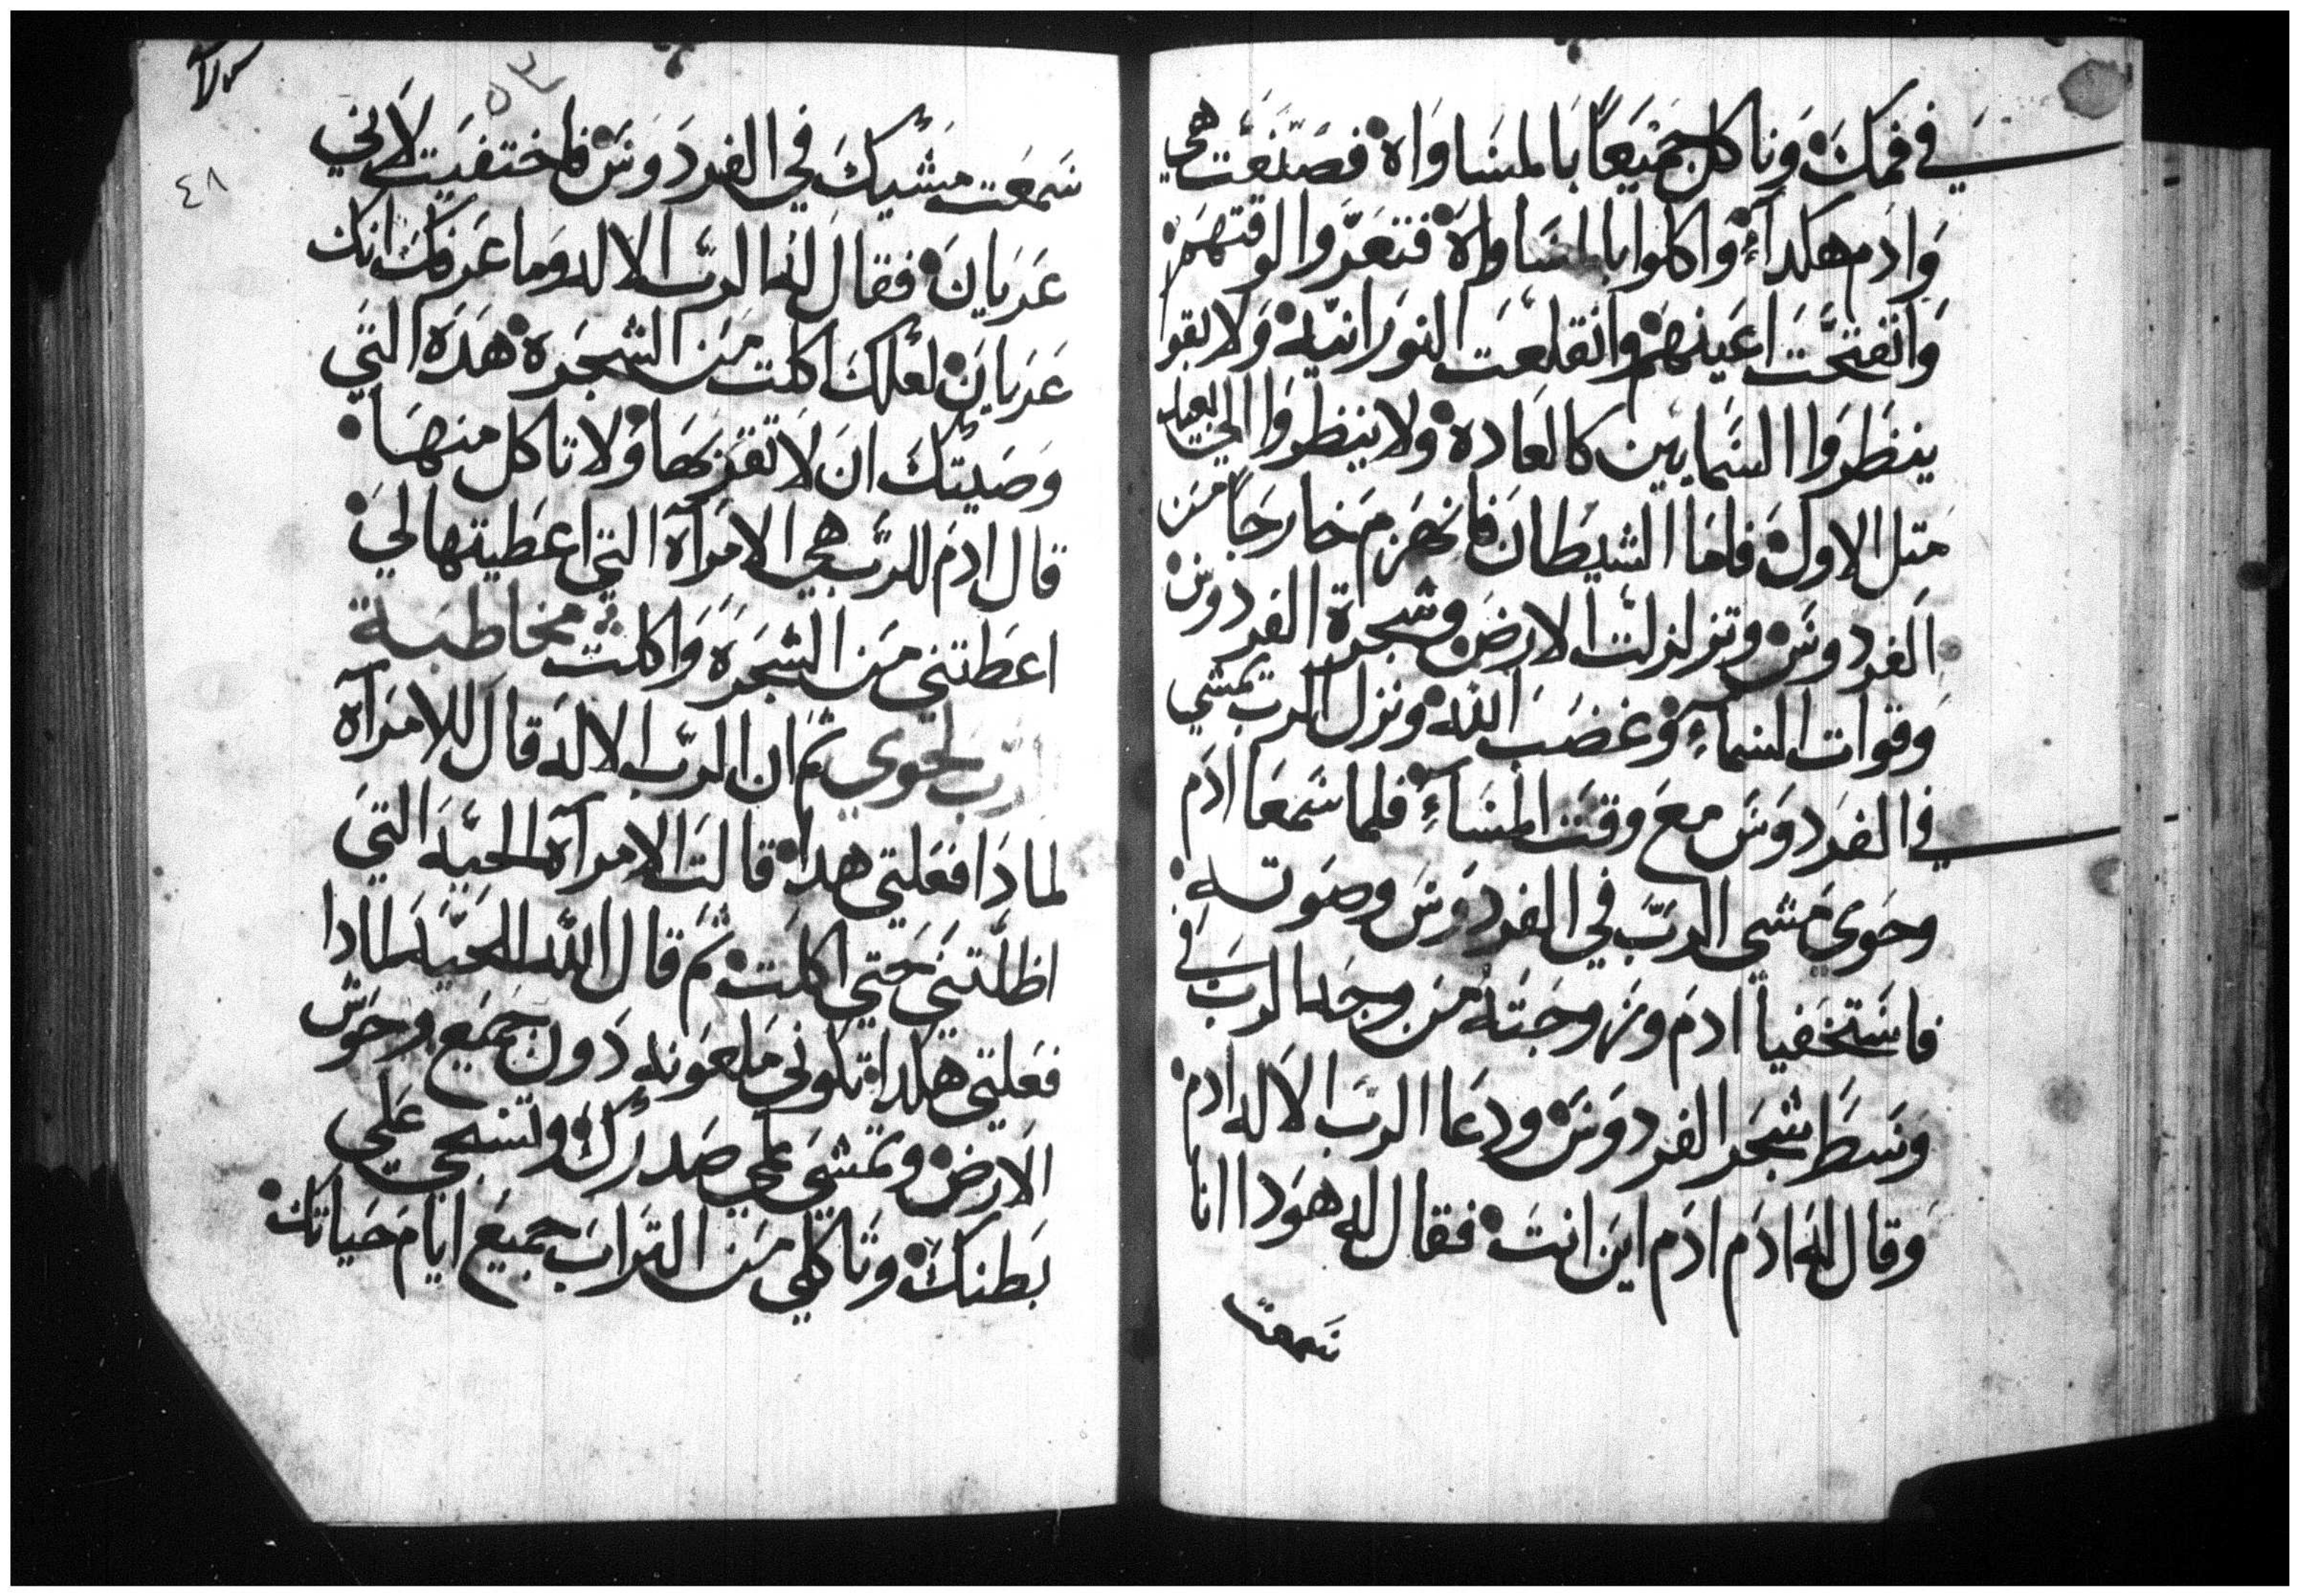 في فمك وناكل جميعاً بالمساواه فصنعت هي
وادم هكداء واكلوا بالمساواه فتعروا لوقتهم
وانفتحت اعينهم وانقلعت النورانيه ولا بقوا
ينظروا السمايين كالعاده ولا ينظروا الي بعيد
متل الاول فاما الشيطان فانهزم خارجاً من
الفردوس وتزلزلت الارض وشجرة الفردوس
وقوات السمآء وغضب الله ونزل الرب يمشي
في الفردوس مع وقت المسآء فلما سمعا ادم
وحوى مشى الرب في الفردوس وصوته
فاستخفيا ادم وزوجته من وجه الرب في
وسط شجر الفردوس ودعا الرب الاله ادم
وقال له ادم ادم اين انت فقال له هودا انا
سمعت
٤٨
سمعت مشيك في الفردوس فاختفيت لاني
عريان فقال له الرب الاله وما عرفك انك
عريان لعلك اكلت من الشجره هده التي
وصيتك ان لا تقربها ولا تاكل منها
قال ادم للرب هي الامرآه التي اعطيتها لي
اعطتني من الشجره واكلت مخاطبة
الرب لحوي ثم ان الرب الاله قال للامرآه
لمادا فعلتي هدا قالت الامرآه الحيه التي
اظلتني حتي اكلت ثم قال الله للحيه لمادا
فعلتي هكدا تكوني ملعونه دون جميع وحوش
الارض وتمشي علي صدرك وتسحي علي
بطنك وتاكلي من التراب جميع ايام حياتك